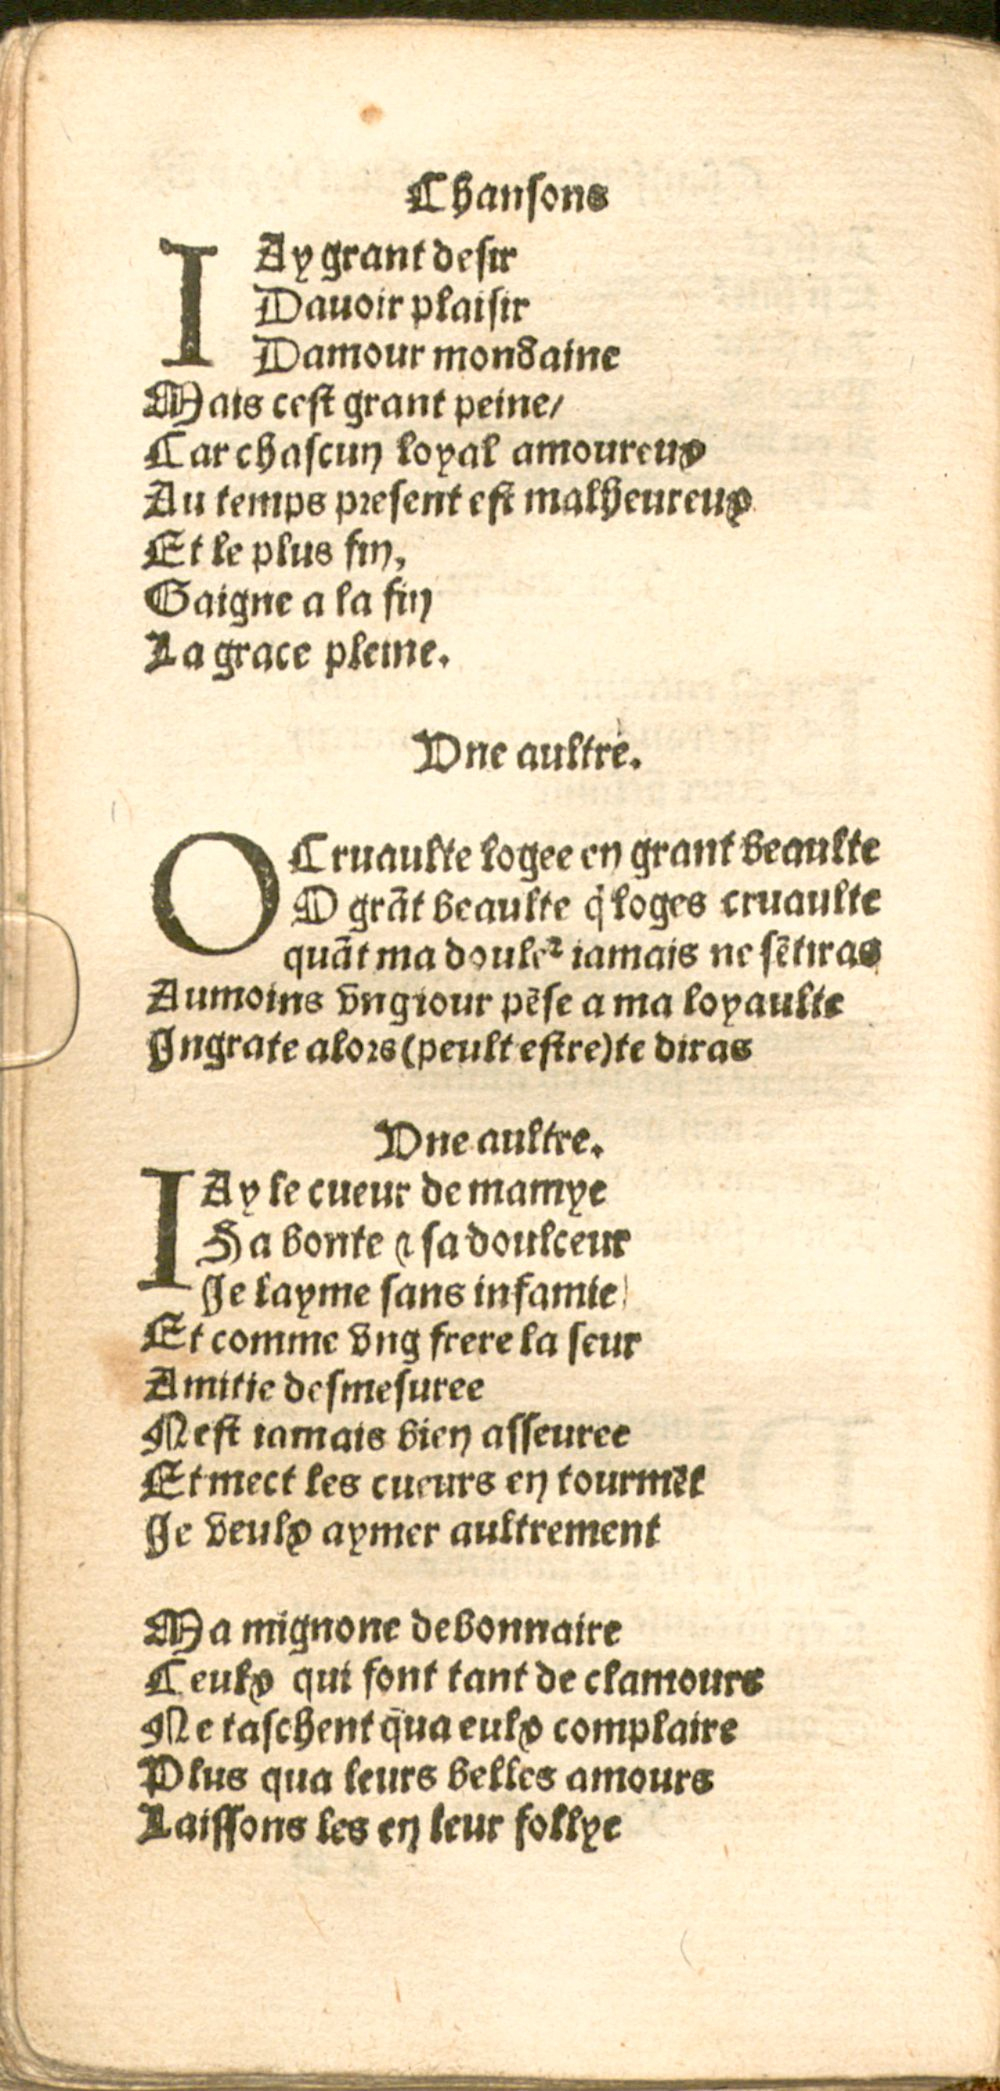 Chansons
IAy grant desir
Dauoir plaisir
Damour mondaine
Mais cest grant peine/
Car chascun loyal amoureux
Au temps present est malheureux
Et le plus fin,
Gaigne a la fin
La grace pleine.
Une aultre.
O Cruaulte logee en grant beaulte
O grãt beaulte q̃ loges cruaulte
quãt ma doule² iamais ne sẽtiras
Aumoins vng iour pẽse a ma loyaulte
Ingrate alors (peult estre) te diras
Une aultre.
IAy le cueur de mamye
Sa bonte ⁊ sa doulceur
Je layme sans infamie
Et comme vng frere la seur
Amitie desmesuree
Nest iamais bien asseuree
Et mect les cueurs en tourmẽt
Je veulx aymer aultrement
Ma mignone debonnaire
Ceulx qui font tant de clamours
Ne taschent q̃ua eulx complaire
Plus qua leurs belles amours
Laissons les en leur follye